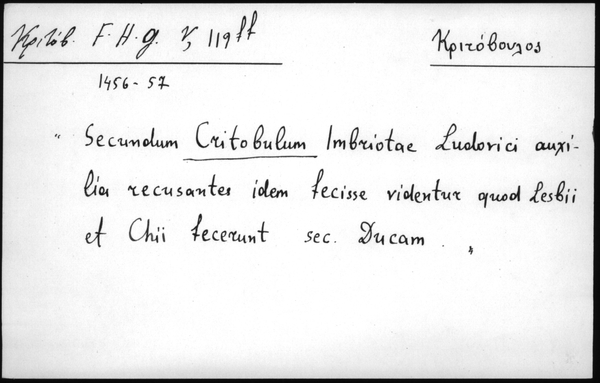 Κριτόβ. F. H. g. V, 119 ff
Κριτόβουλος
1456-57
" Secundum Critobulum Imbriotae Ludovici auxi-
lia recusantes idem fecisse videntur quod Lesbii
et Chii fecerunt sec. Ducam. "